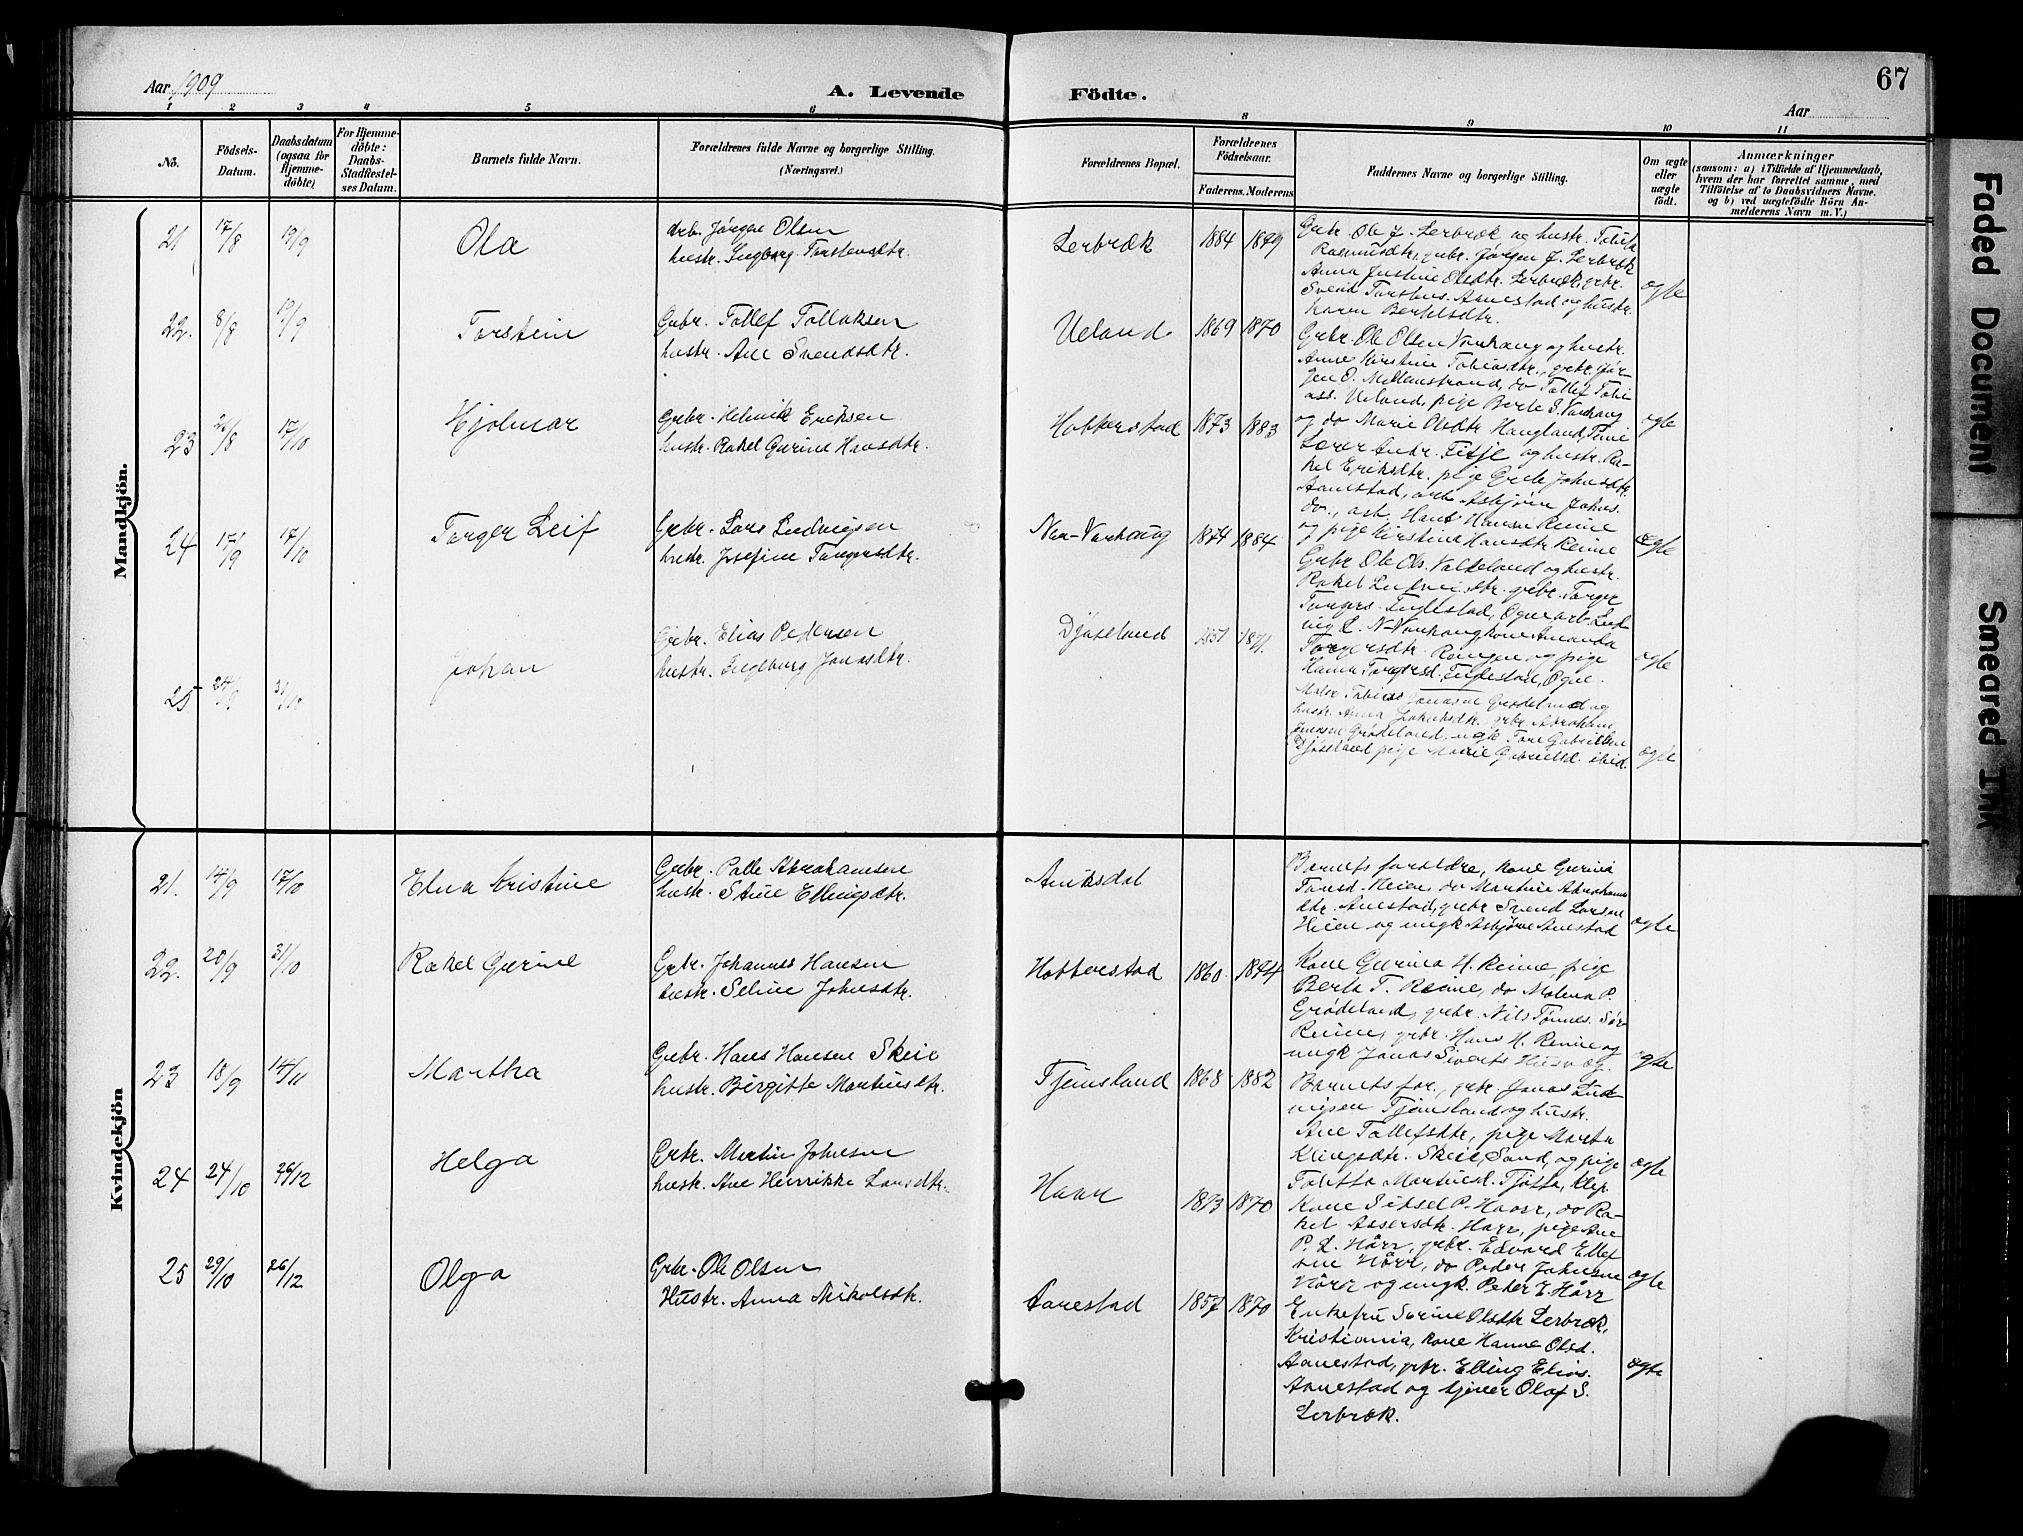 Aar 1909
A. Levende Födte.
67
Aar
1 2 3 4 5 6 8 9 10 11
No.
Födsels-
Datum.
Daabsdatum
(ogsaa for
Hjemme-
döbte)
For Hjemme-
döbte:
Daabs-
Stadfæstel-
ses Datum.
Barnets fulde Navn.
Forældrenes fulde Navne og borgerlige Stilling.
(Næringsvei.)
Forældrenes Bopæl.
Forældrenes
Födselsaar.
Faderens. Moderens.
Faddernes Navne og borgerlige Stilling.
Om ægte
eller
uægte
födt.
Anmærkninger
(saasom: a) i Tilfælde af Hjemmedaab,
hvem der har forrettet samme, med
Tilföielse af to Daabsvidners Navne.
og b) ved uægtefödte Börn An-
melderens Navn m. V.)
Mandkjön.
21 17/8 19/9 Ola
Arb. Jørgen Olsen
hustr. Ingborg Torstensdtr.
Lerbræk 1884 1879
Grbr. Ole J. Lerbræk og hustr. Tolita
Rasmusdtr., grbr. Jørgen J. Lerbræk
Anna Justine Olsdtr. Lerbræk, grbr.
Svend Torstens. Aanestad og hustr.
Karen Bertelsdtr.
ægte
22. 8/8 19/9 Torstein
Grbr. Tollef Tollaksen
hustr. Ane Svendsdtr.
Ueland 1869 1870
Grbr. Ole Olsen Varhaug og hustr.
Anne Kirstine Tobiasdtr., grbr. Jør-
gen O. Mellemstrand, do Tollef Tobi-
ass. Ueland, pige Berte S. Varhaug
og do Marie Olsdtr. Haugland, Time
ægte
23 26/8 17/10 Hjalmar
Grbr. Helmik Eriksen
hustr. Rakel Gurine Hansdtr.
Hobberstad 1873 1883
Lærer Andr. Fitje og hustr. Ra-
kel Eriksdtr. pige Grete Johnsdtr.
Aanestad, arb. Asbjørn Johns.
do., arb. Hans Hansen Reime
og pige Kirstine Hansdtr. Reime
ægte
24 17/9 17/10 Torger Leif
Grbr. Lars Ludvigsen
hustr. Josefine Torgersdtr.
N-Varhaug 1874 1884
Grbr. Ole Ols. Valkeland og hustr.
Rakel Ludvigsdtr. grbr. Torger
Torgers. Fuglestad, Ogne arb. Lud-
vig L. N-Varhaug kone Amanda
Torgersdtr. og pige
Hanna Torgersd. Fuglestad, Ogne.
ægte
25 24/9 31/10 Johan
Grbr. Elias Pedersen
hustr. Ingeborg Jonasdtr.
Djøseland 1851 1871.
Maler Tobias Jonassen Grødeland og
hustr. Anna Jakobsdtr., grbr. Abraham
Jonasen Grødeland, ungk. Tore Gabrielsen
Djøseland, pige Marie Gabrielsd. ibid.
ægte
Kvindekjön
21. 14/9 17/10 Elna Kristine
Grbr. Palle Abrahamsen
hustr. Stine Ellingsdtr.
Aniksdal
Barnets forældre, kone Gurina
Torsd. Heien, do Martine Abrahams-
dtr. Anestad, grbr. Svend Larsen
Heien og ungk. Asbjørn Anestad
ægte
22. 20/9 31/10 Rakel Gurine
Grbr. Johannes Hansen
hustr. Seline Johnsdtr.
Hobberstad 1860 1874
Kone Gurina H. Reime, pige
Berte T. Reime, do Malena P.
Grødeland, grbr. Nils Tønnes. Sør-
Reime, grbr. Hans H. Reime og
ungk Jonas Siverts Husvæg.
ægte
23 18/9 14/11 Martha
Grbr. Hans Hansen Skeie
hustr. Birgitte Martinsdtr.
Tjemsland 1868 1882
Barnets for., grbr. Jonas Lud-
vigsen Tjemsland og hustr.
Ane Tollefsdtr., pige Marta
Ellingsdtr. Skeie, Sand, og pige
Tolitta Martinsd. Tjøtta, Klep
ægte
24 24/10 26/12 Helga
Grbr. Martin Johnsen
hustr. Ane Henrikke Larsdtr.
Haar 1873 1870
Kone Sissel P. Haarr, do Ra-
kel Assersdtr. Harr, pige Ane
P. L. Hårr, grbr. Edvard Ellef-
sen Hårr, do Peder Johnsen
Hårr og ungk. Peter E. Hårr
ægte
25 29/10 26/12 Olga
Grbr. Ole Olsen
Hustr. Anna Nikolsdtr.
Aanestad 1857 1870
Enkefru Serine Olsdtr. Lerbræk,
Kristiania, kone Hanne Olsd.
Aanestad, grbr. Elling Elias.
Aanestad og tjener Olaf S.
Lerbræk.
ægte
Faded Document
Smeared Ink